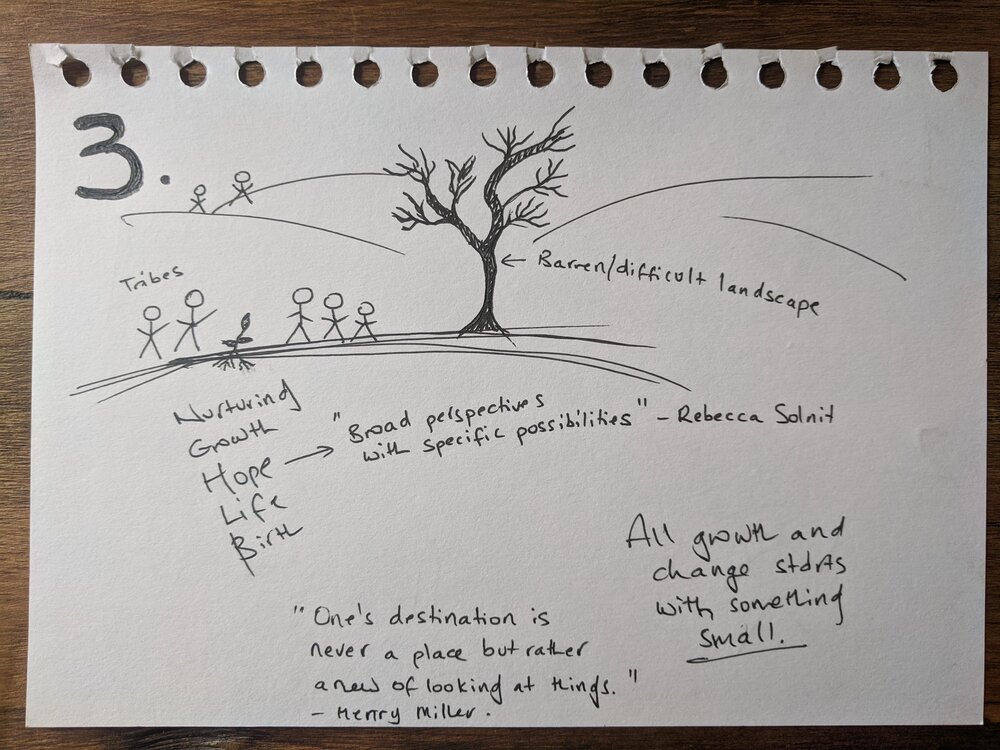 3.
Tribes
← Barren/difficult landscape
Nurturing
Growth
Hope →
Life
Birth
"Broad perspectives
with specific possibilities" - Rebecca Solnit
All growth and
change starts
with something
small.
"One's destination is
never a place but rather
a new of looking at things."
- Henry Miller.